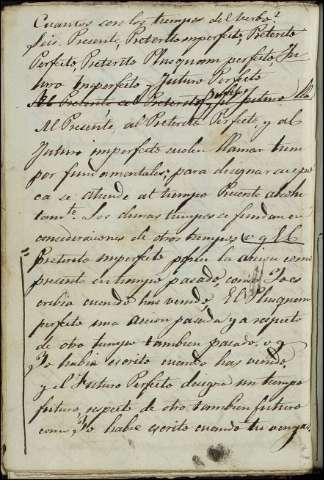 Cuantos son los tiempos del verbo?
Seis. Presente, Preterito imperfecto, Preterito
Perfecto, Preterito Plusquam perfecto, Fu-
turo Imperfecto y Futuro Perfecto
Al Presente, al Preterito Perfecto y al
Futuro imperfecto suelen llamar tiem
por fundamentales; para designar
ca se atiende al tiempo Presente
tamte. Los demas tiempos se fundan en
consideraciones de otros tiempos v. g. El
Preterito imperfecto pone la accion como
presente en tiempo pasado, como Yo es
cribia cuando has venido. El Plusquam
perfecto una accion pasada ya respecto
de otro tiempo tambien pasado. v. g.
Yo habia escrito cuando has venido,
y el Futuro Perfecto designa un tiempo
futuro respecto de otro tambien futuro
como Yo habré escrito cuando tu vengas.